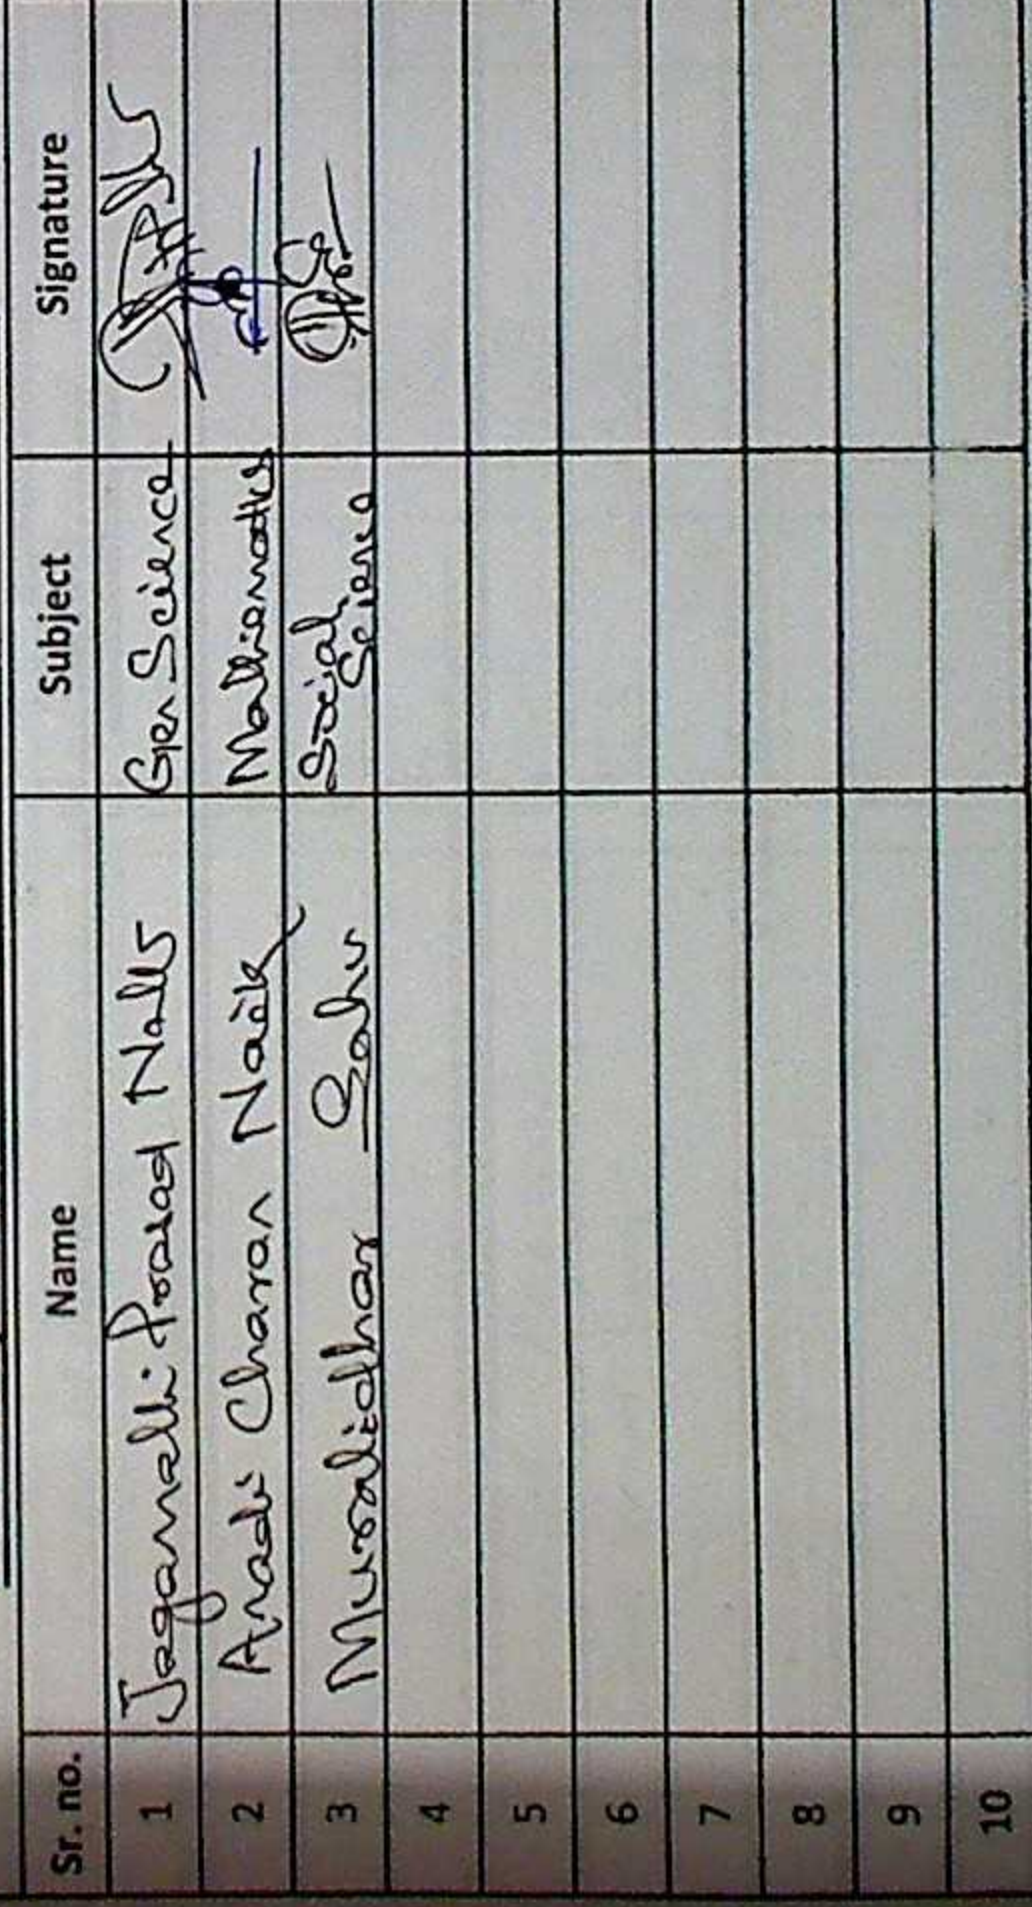 Sr. no. Name Subject Signature
1 Jaganath Prasad Gen Science
2 Anadi Charan Naik Mathematics
3 Muralidhar Sahu Social Science
4
5
6
7
8
9
10